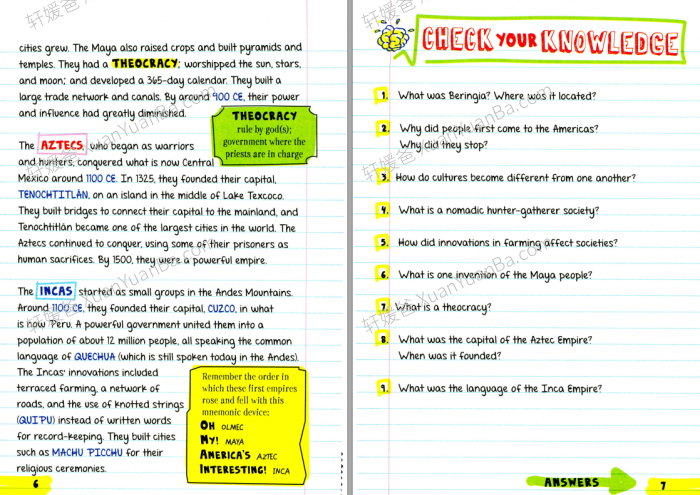 cities grew. The Maya also raised crops and built pyramids and
temples. They had a THEOCRACY; worshipped the sun, stars,
and moon; and developed a 365-day calendar. They built a
large trade network and canals. By around 900 CE, their power
and influence had greatly diminished.
THEOCRACY
rule by god(s);
government where the
priests are in charge
The AZTECS, who began as warriors
and hunters, conquered what is now Central
Mexico around 1100 CE. In 1325, they founded their capital,
TENOCHTITLÁN, on an island in the middle of Lake Texcoco.
They built bridges to connect their capital to the mainland, and
Tenochtitlán became one of the largest cities in the world. The
Aztecs continued to conquer, using some of their prisoners as
human sacrifices. By 1500, they were a powerful empire.
The INCAS started as small groups in the Andes Mountains.
Around 1100 CE, they founded their capital, CUZCO, in what
is now Peru. A powerful government united them into a
population of about 12 million people, all speaking the common
language of QUECHUA (which is still spoken today in the Andes).
The Incas' innovations included
terraced farming, a network of
roads, and the use of knotted strings
(QUIPU) instead of written words
for record-keeping. They built cities
such as MACHU PICCHU for their
religious ceremonies.
Remember the order in
which these first empires
rose and fell with this
mnemonic device:
OH OLMEC
MY! MAYA
AMERICA'S AZTEC
INTERESTING! INCA
6
CHECK YOUR KNOWLEDGE
1. What was Beringia? Where was it located?
2. Why did people first come to the Americas?
Why did they stop?
3. How do cultures become different from one another?
4. What is a nomadic hunter-gatherer society?
5. How did innovations in farming affect societies?
6. What is one invention of the Maya people?
7. What is a theocracy?
8. What was the capital of the Aztec Empire?
When was it founded?
9. What was the language of the Inca Empire?
ANSWERS
7
轩媛爸 XuanYuanBa.com
轩媛爸 XuanYuanBa.com
轩媛爸 XuanYuanBa.com
轩媛爸 XuanYuanBa.com